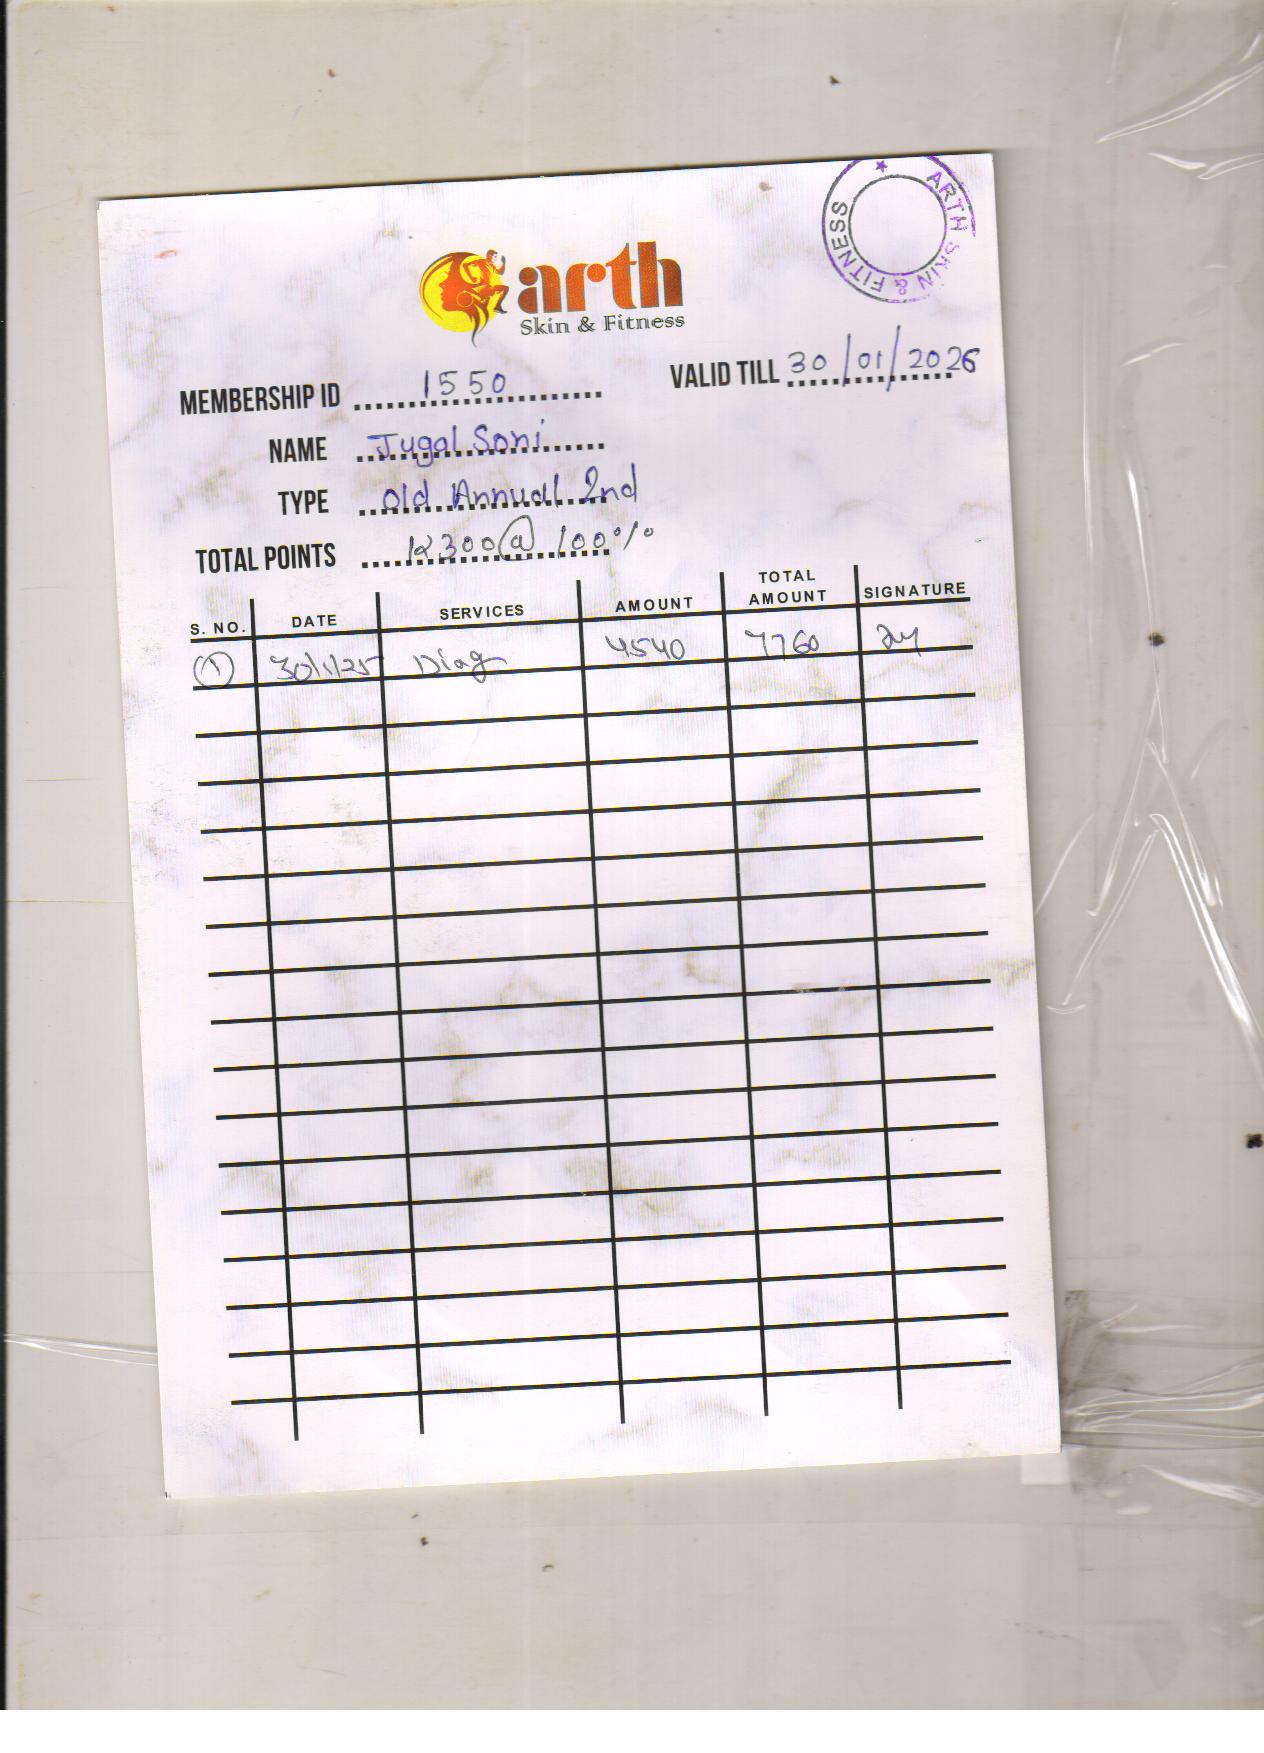 ARTH SKIN & FITNESS
arth
Skin & Fitness
MEMBERSHIP ID 1550 VALID TILL 30/01/2026
NAME Jugal Soni
TYPE Old Annual 2nd
TOTAL POINTS 12300@ 100%
S. NO. DATE SERVICES AMOUNT TOTAL AMOUNT SIGNATURE
1 30/1/25 Diag 4540 7760